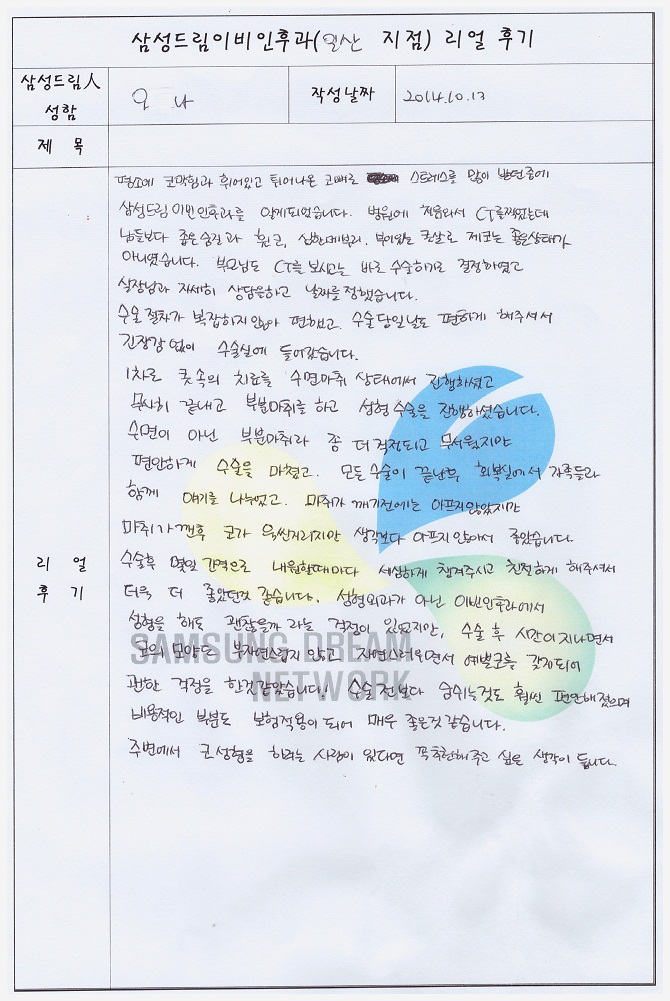 삼성드림이비인후과(일산 지점) 리얼 후기
삼성드림人
성함
오 나
작성날짜
2014.10.13
제 목
평소에 코막힘과 휘어있고 튀어나온 코뼈로 스트레스를 많이 받던중에
삼성드림 이비인후과를 알게되었습니다. 병원에 처음와서 CT를찍었는데
남들보다 좁은숨길과 휜코, 심한매부리. 부어있는 콧살로 제코는 좋은상태가
아니였습니다. 부모님도 CT를 보시고는 바로 수술하기로 결정하였고
실장님과 자세히 상담을하고 날짜를 정했습니다.
수술 절차가 복잡하지 않아 편했고. 수술당일날도 편하게 해주셔서
긴장감 없이 수술실에 들어갔습니다.
1차로 콧속의 치료를 수면마취 상태에서 진행하셨고
무사히 끝내고 부분마취를 하고 성형 수술을 진행하셨습니다.
수면이 아닌 부분마취라 좀 더 걱정되고 무서웠지만
편안하게 수술을 마쳤고. 모든수술이 끝난후 회복실에서 가족들과
함께 얘기를 나누었고. 마취가 깨기전에는 아프지않았지만
마취가 깬후 코가 욱씬거리지만 생각보다 아프지 않아서 좋았습니다.
리 얼
후 기
수술후 몇일 간격으로 내원할때마다 세심하게 챙겨주시고 친절하게 해주셔서
더욱 더 좋았던것 같습니다. 성형외과가 아닌 이비인후과에서
성형을 해도 괜찮을까 라는 걱정이 있었지만, 수술 후 시간이지나면서
코의 모양도 부자연스럽지 않고 자연스러우면서 예쁜코를 갖게되어
괜한 걱정을 한것같았습니다! 수술전보다 숨쉬는것도 훨씬 편안해졌으며
비용적인 부분도 보험적용이 되어 매우 좋은것 같습니다.
주변에서 코성형을 하려는 사람이 있다면 꼭 추천해주고 싶은 생각이 듭니다.
SAMSUNG DREAM
NETWORK